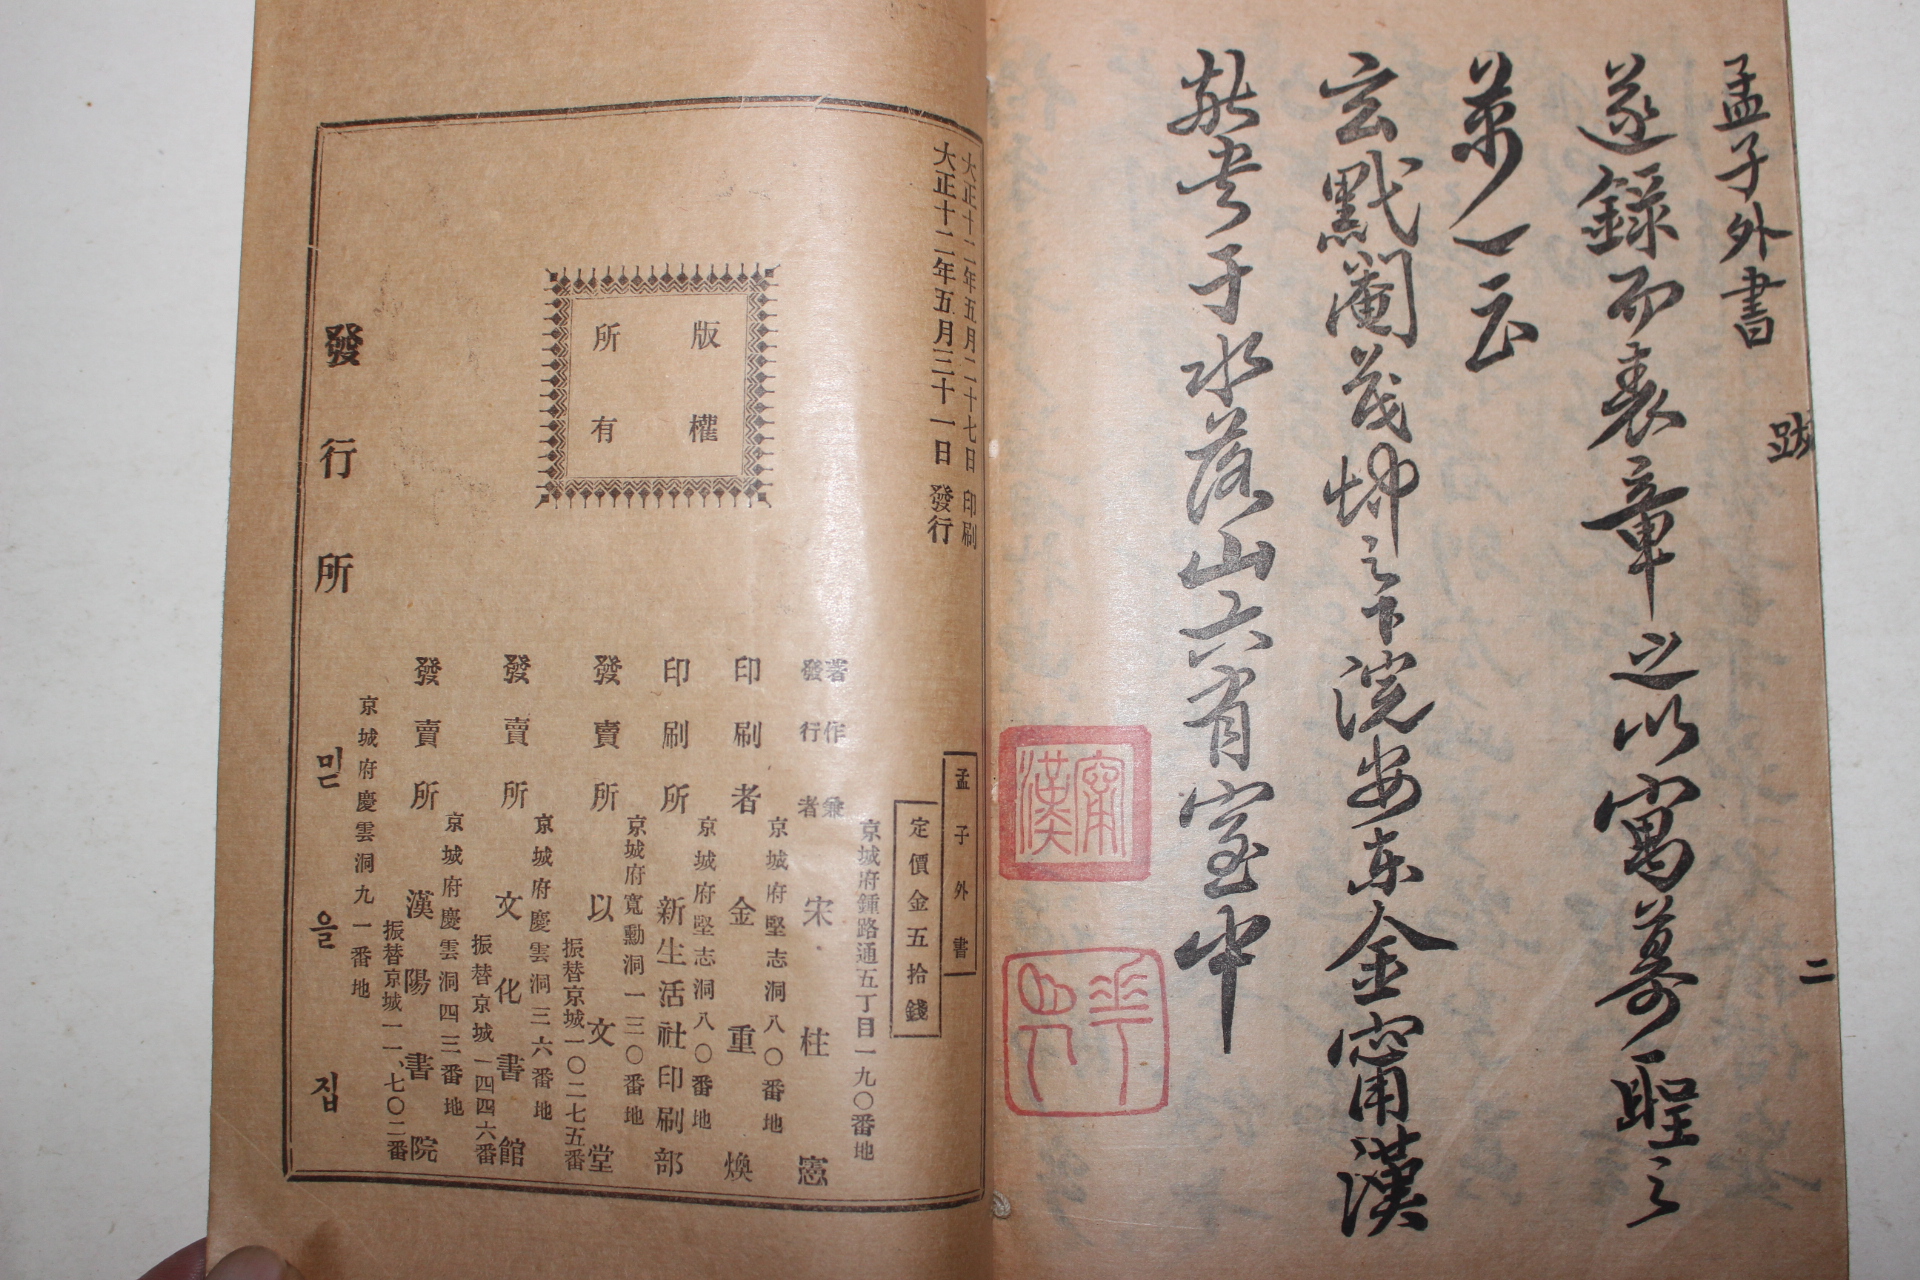 孟子外書
跋
二
遂錄而表章之以寓慕聖之
萬一云
玄黓閹茂坤之下浣安東金甯漢
敬書于水落山六有室中
甯漢
大正十二年五月二十七日 印刷
大正十二年五月三十一日 發行
版權
所有
孟子外書
定價金五拾錢
京城府鍾路通五丁目一九〇番地
著作兼
發行者 宋柱憲
京城府堅志洞八〇番地
印刷者 金重煥
京城府堅志洞八〇番地
印刷所 新生活社印刷部
京城府寬勳洞一三〇番地
發賣所 以文堂
振替京城一〇二七五番
京城府慶雲洞三六番地
發賣所 文化書館
振替京城一四四六番
京城府慶雲洞四三番地
發賣所 漢陽書院
振替京城一一、七〇二番
京城府慶雲洞九一番地
發行所 믿을집